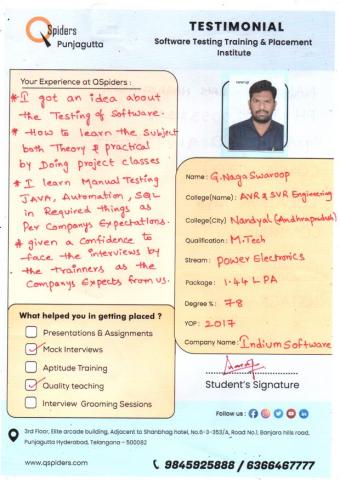 QSpiders
Punjagutta
TESTIMONIAL
Software Testing Training & Placement
Institute
Your Experience at QSpiders :
* I got an idea about
the Testing of Software.
* How to learn the Subject
both Theory & practical
by Doing project classes
* I learn Manual Testing
JAVA, Automation, SQL
in Required things as
Per Companys Expectations.
* given a confidence to
face the interviews by
the trainners as the
Companys Expects from us.
Name: G. Naga Swaroop
College(Name): AVR & SVR Engineering
College(City) Nandyal (Andhrapradesh)
Qualification: M.Tech
Stream: Power Electronics
Package: 1.44 LPA
Degree %: 78
YOP: 2017
Company Name: Indium Software
Student's Signature
What helped you in getting placed ?
Presentations & Assignments
Mock Interviews
Aptitude Training
Quality teaching
Interview Grooming Sessions
Follow us :
3rd Floor, Elite arcade building, Adjacent to Shanbhag hotel, No.6-3-353/A, Road No.1, Banjara hills road,
Punjagutta Hyderabad, Telangana - 500082
www.qspiders.com
9845925888 / 6366467777